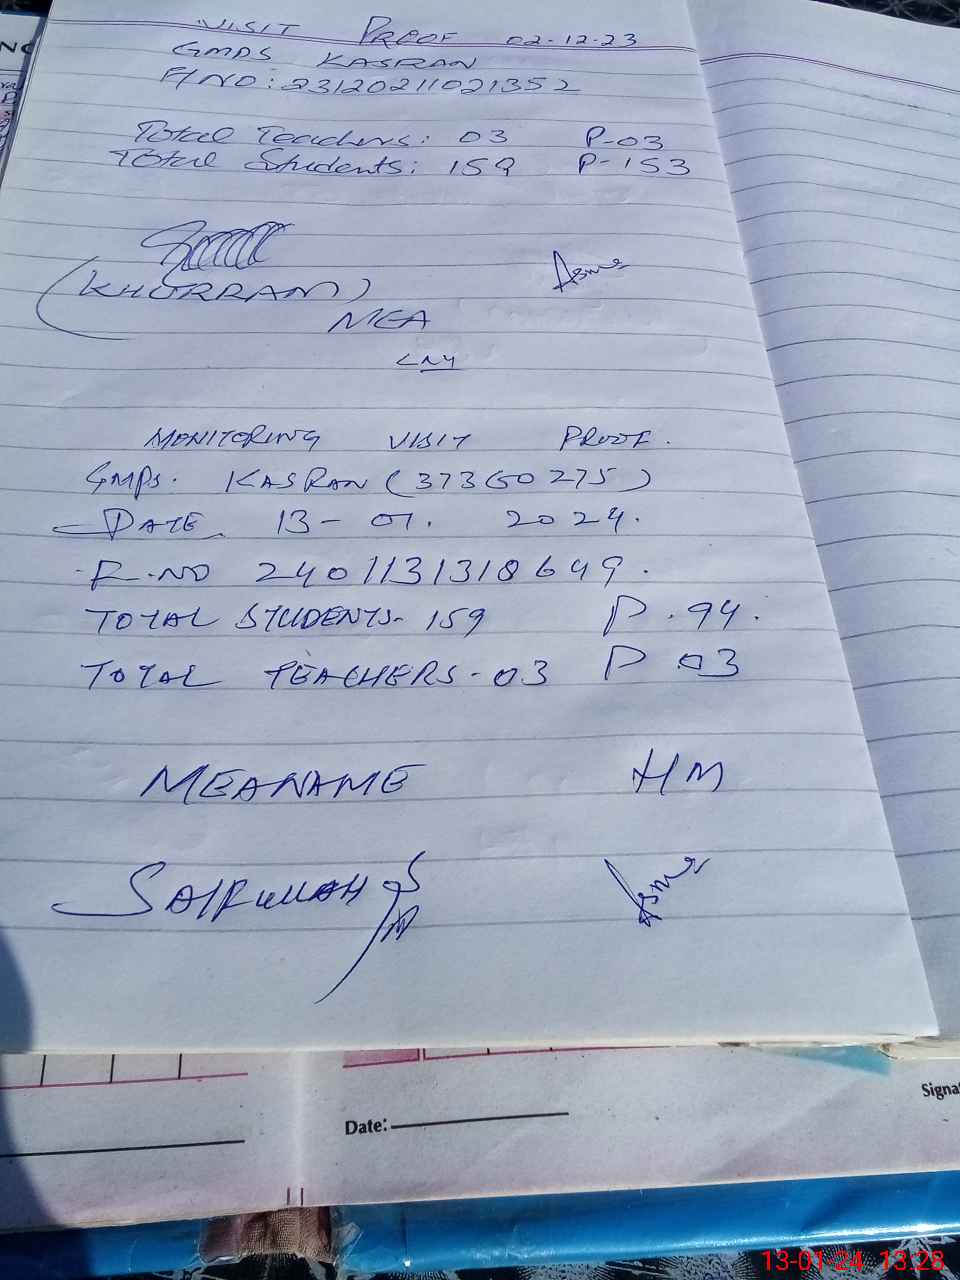 VISIT PROOF 02-12-23
GMPS KASRAN
F/NO: 23120211021352
Total Teachers: 03 P-03
Total Students: 159 P-153
(KHURRAM)
MEA
Asma
MONITORING VISIT PROOF.
GMPS. KASRAN (37360275)
DATE. 13-01. 2024.
R.NO 2401131318649.
TOTAL STUDENTS- 159 P. 94.
TOTAL TEACHERS- 03 P 03
MEANAME HM
SAIFULLAH
Asma
Date:
Signa
13-01-24 13:28